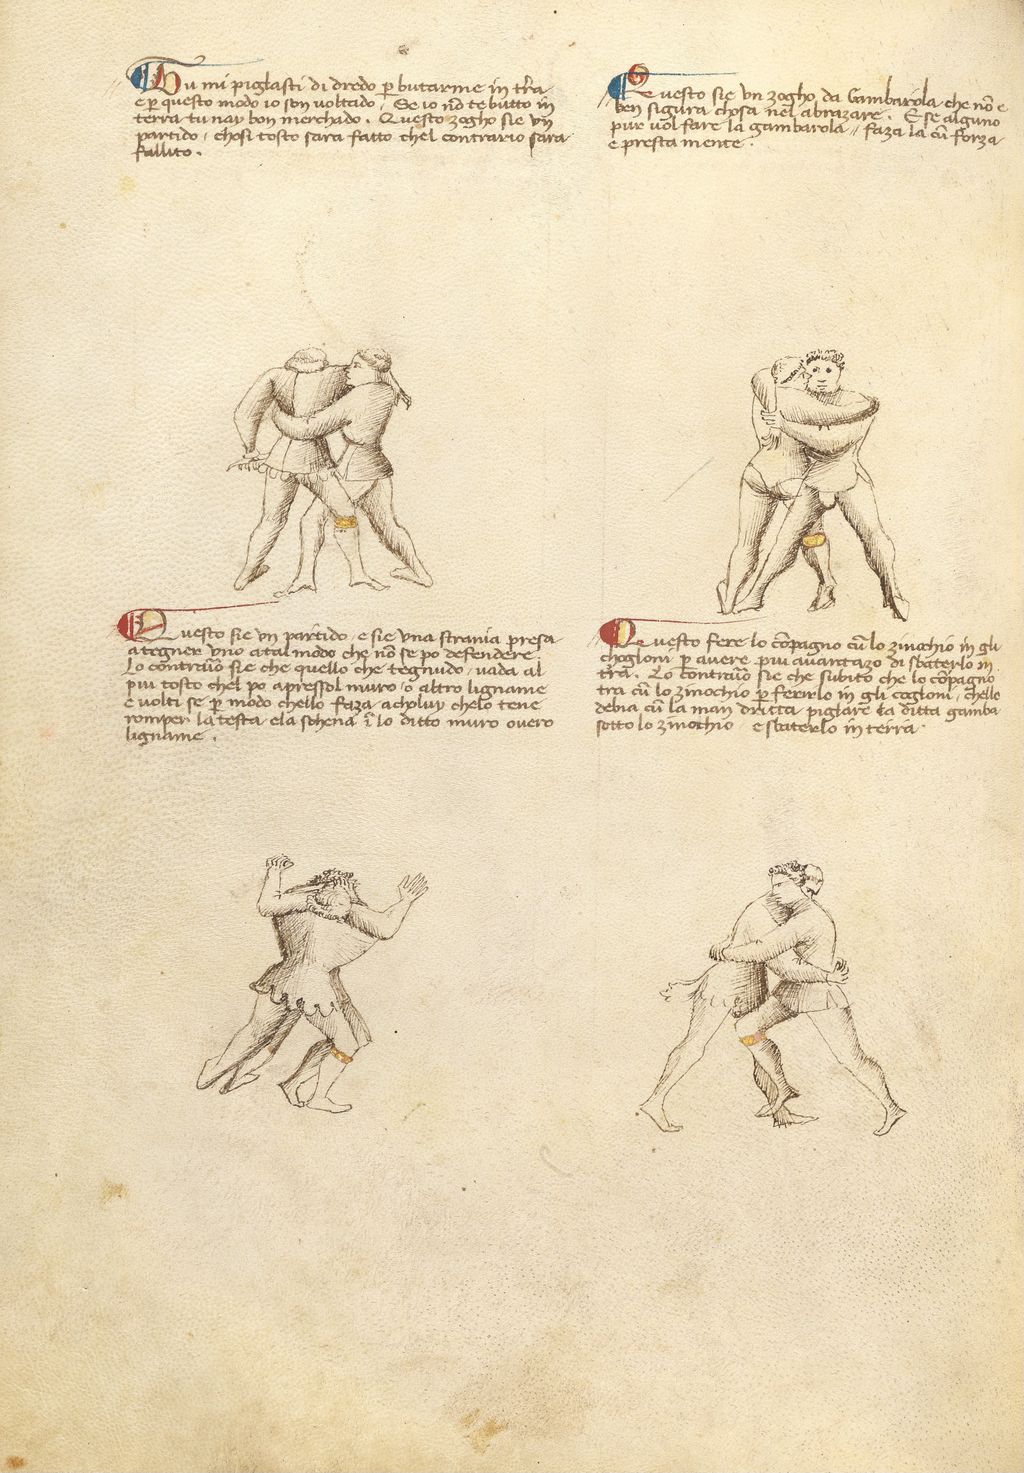 Tu mi piglasti di dredo p̄ butarme in tr̄a
e p̄ questo modo io son voltado. Se io nō te butto in
terra tu nay bon merchado. Questo zogho sie un
partido, chosi tosto sara fatto chel contrario sara
fallito.
Questo sie un zogho da Gambarola che nō e
ben sigura chosa nel abrazare. E se alguno
pur vol fare la gambarola, faza la cū forza
e presta mente.
Questo sie un partido, e sie una strania presa
a tegner uno a tal modo che nō se po defendere.
Lo contrario sie che quello che tegnudo, vada al
piu tosto chel po apressol muro, o altro ligname
e volti se p̄ modo chello faza acholuy chelo tene
romper la testa, e la schena ī lo ditto muro overo
ligname.
Questo fere lo cōpagno cū lo zinochio in gli
chogloni p̄ avere piu avantazo di sbaterlo in
tr̄a. Lo contrario sie che subito che lo cōpagno
tra cū lo zinochio p̄ ferirlo in gli cogloni, chello
debia cū la man dritta piglare la ditta gamba
sotto lo zinochio e sbaterlo in terra.